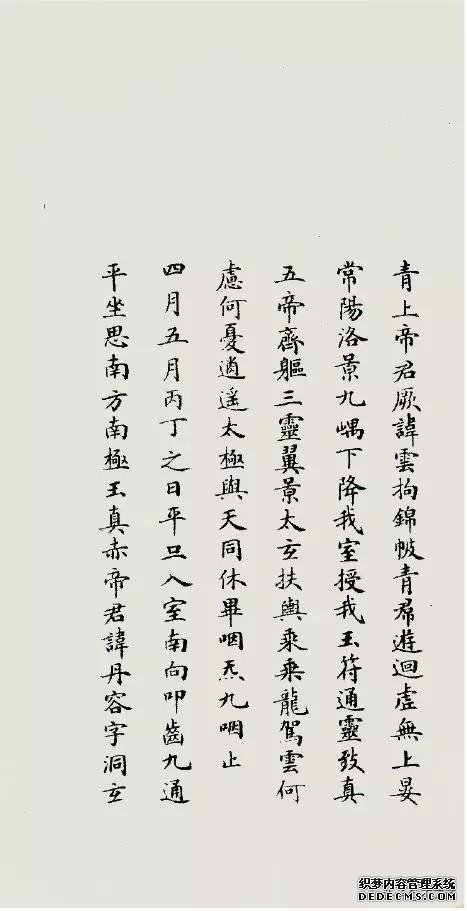 青上帝君厥諱雲拘錦帔青帬遊迴虛無上晏
常陽洛景九嵎下降我室授我玉符通靈致真
五帝齊軀三靈翼景太玄扶輿乘乘龍駕雲何
慮何憂逍遙太極與天同休畢咽炁九咽止
四月五月丙丁之日平旦入室南向叩齒九通
平坐思南方南極玉真赤帝君諱丹容字洞玄
织梦内容管理系统
DEDECMS.COM